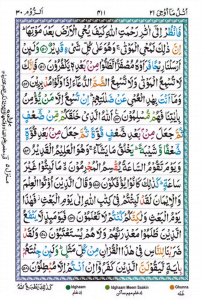 اَلرُّوْم ٣٠
اُتْلُ مَآ اُوْحِیَ ٢١
فَانْظُرْ اِلٰۤى اٰثٰرِ رَحْمَتِ اللّٰهِ كَیْفَ یُحْیِ الْاَرْضَ بَعْدَ مَوْتِهَا
اِنَّ ذٰلِكَ لَمُحْیِ الْمَوْتٰى وَهُوَ عَلٰى كُلِّ شَیْءٍ قَدِیْرٌ وَلَىِٕنْ
اَرْسَلْنَا رِیْحًا فَرَاَوْهُ مُصْفَرًّا لَّظَلُّوْا مِنْۢ بَعْدِهٖ یَكْفُرُوْنَ فَاِنَّكَ
لَا تُسْمِعُ الْمَوْتٰى وَلَا تُسْمِعُ الصُّمَّ الدُّعَآءَ اِذَا وَلَّوْا مُدْبِرِیْنَ
وَمَاۤ اَنْتَ بِهٰدِ الْعُمْیِ عَنْ ضَلٰلَتِهِمْ اِنْ تُسْمِعُ اِلَّا مَنْ یُّؤْمِنُ
بِاٰیٰتِنَا فَهُمْ مُّسْلِمُوْنَ اَللّٰهُ الَّذِیْ خَلَقَكُمْ مِّنْ ضُعْفٍ
ثُمَّ جَعَلَ مِنْۢ بَعْدِ ضُعْفٍ قُوَّةً ثُمَّ جَعَلَ مِنْۢ بَعْدِ قُوَّةٍ
ضُعْفًا وَّشَیْبَةً یَخْلُقُ مَا یَشَآءُ وَهُوَ الْعَلِیْمُ الْقَدِیْرُ
وَیَوْمَ تَقُوْمُ السَّاعَةُ یُقْسِمُ الْمُجْرِمُوْنَ مَا لَبِثُوْا غَیْرَ
سَاعَةٍ كَذٰلِكَ كَانُوْا یُؤْفَكُوْنَ وَقَالَ الَّذِیْنَ اُوْتُوا الْعِلْمَ
وَالْاِیْمَانَ لَقَدْ لَبِثْتُمْ فِیْ كِتٰبِ اللّٰهِ اِلٰى یَوْمِ الْبَعْثِ فَهٰذَا
یَوْمُ الْبَعْثِ وَلٰكِنَّكُمْ كُنْتُمْ لَا تَعْلَمُوْنَ فَیَوْمَىِٕذٍ لَّا یَنْفَعُ
الَّذِیْنَ ظَلَمُوْا مَعْذِرَتُهُمْ وَلَا هُمْ یُسْتَعْتَبُوْنَ وَلَقَدْ
ضَرَبْنَا لِلنَّاسِ فِیْ هٰذَا الْقُرْاٰنِ مِنْ كُلِّ مَثَلٍ وَلَىِٕنْ جِئْتَهُمْ
بِاٰیَةٍ لَّیَقُوْلَنَّ الَّذِیْنَ كَفَرُوْۤا اِنْ اَنْتُمْ اِلَّا مُبْطِلُوْنَ
كَذٰلِكَ یَطْبَعُ اللّٰهُ
Idghaam
Idghaam Meem Saakin
Ghunna